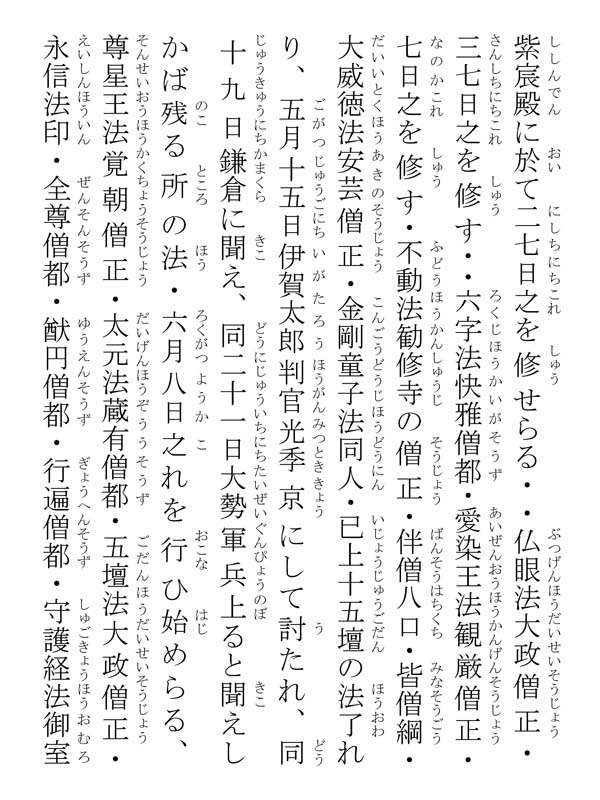 紫宸殿に於て二七日之を修せらる・・仏眼法大政僧正・
三七日之を修す・・六字法快雅僧都・愛染王法観厳僧正・
七日之を修す・不動法勧修寺の僧正・伴僧八口・皆僧綱・
大威徳法安芸僧正・金剛童子法同人・已上十五壇の法了れ
り、五月十五日伊賀太郎判官光季京にして討たれ、同
十九日鎌倉に聞え、同二十一日大勢軍兵上ると聞えし
かば残る所の法・六月八日之れを行ひ始めらる、
尊星王法覚朝僧正・太元法蔵有僧都・五壇法大政僧正・
永信法印・全尊僧都・猷円僧都・行遍僧都・守護経法御室